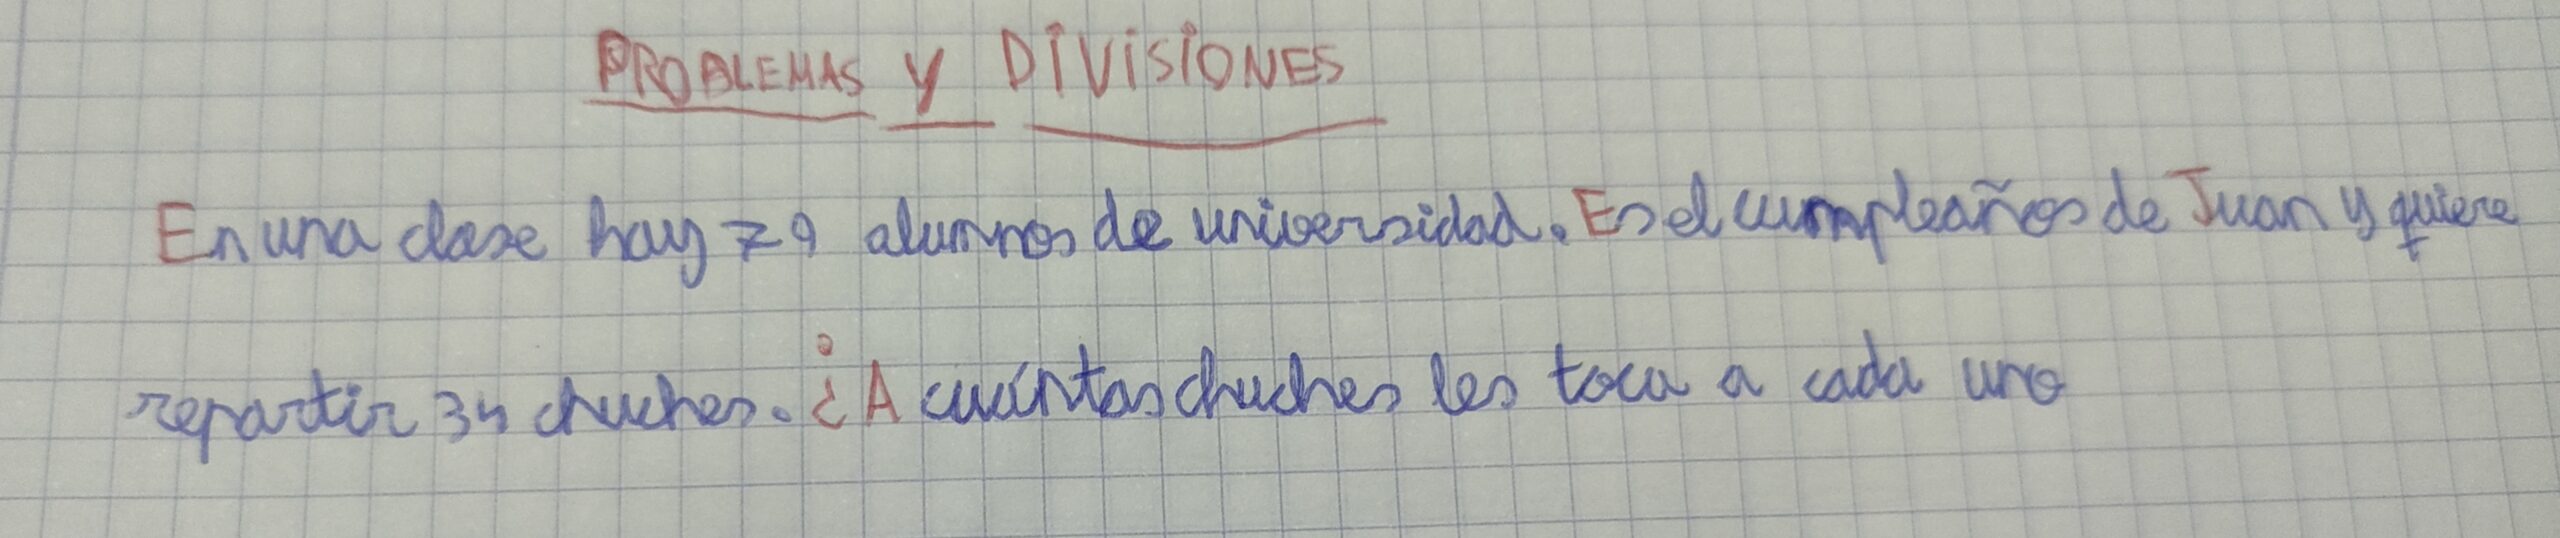 PROBLEMAS y DIVISIONES
En una clase hay 79 alumnos de universidad. Es el cumpleaños de Juan y quiere
repartir 34 chuches. ¿A cuántas chuches les toca a cada uno